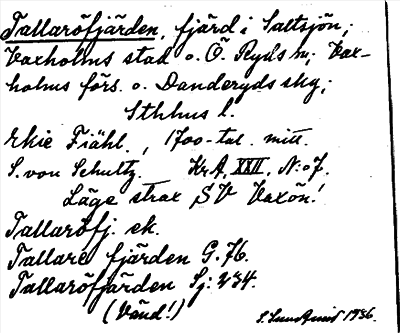 Tallaröfjärden, fjärd i Saltsjön;
Vaxholms stad o. Ö. Ryds sn; Vax-
holms förs. o. Danderyds skg;
Sthlms l.
Fiähl., 1700-tal. mitt.
S. von Schultz. KrA, XXII, N:o 7.
Läge strax SV Vaxön!
Tallaröfj. ek.
Tallare fjärden G. 76.
Tallaröfjärden Sj. 234.
(Vänd!)
1936.